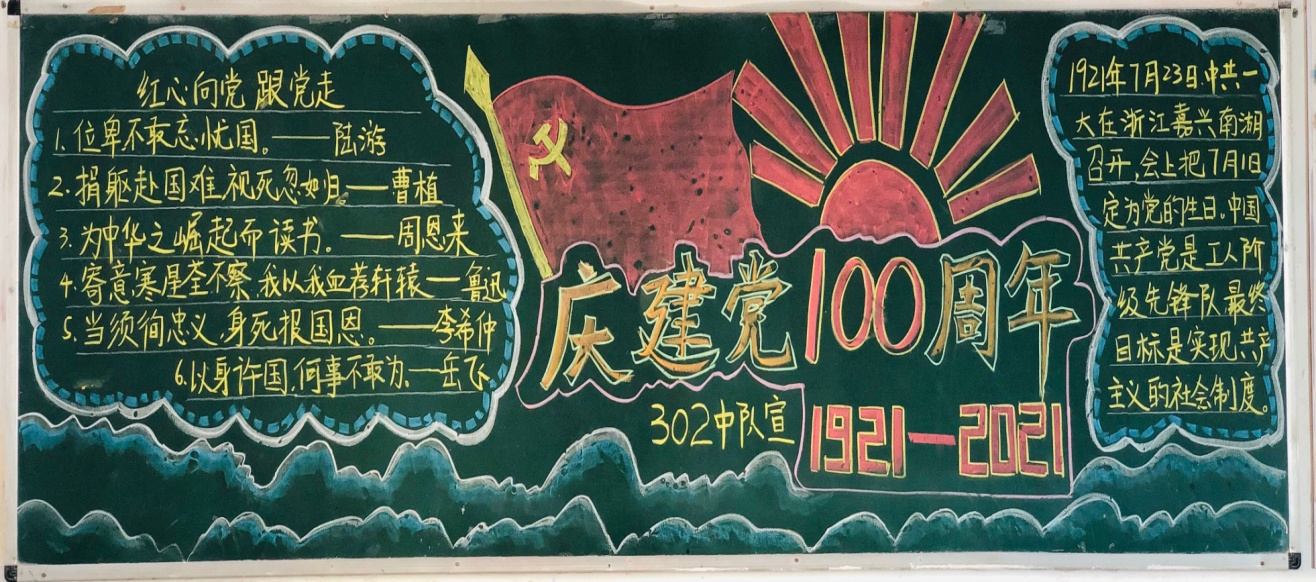 红心向党 跟党走
1.位卑不敢忘忧国。——陆游
2.捐躯赴国难,视死忽如归。——曹植
3.为中华之崛起而读书。——周恩来
4.寄意寒星荃不察,我以我血荐轩辕——鲁迅
5.当须徇忠义,身死报国恩。——李希仲
6.以身许国,何事不敢为。—岳飞
庆建党100周年
302中队宣
1921—2021
1921年7月23日.中共一
大在浙江嘉兴南湖
召开,会上把7月1日
定为党的生日。中国
共产党是工人阶
级先锋队最终
目标是实现共产
主义的社会制度。